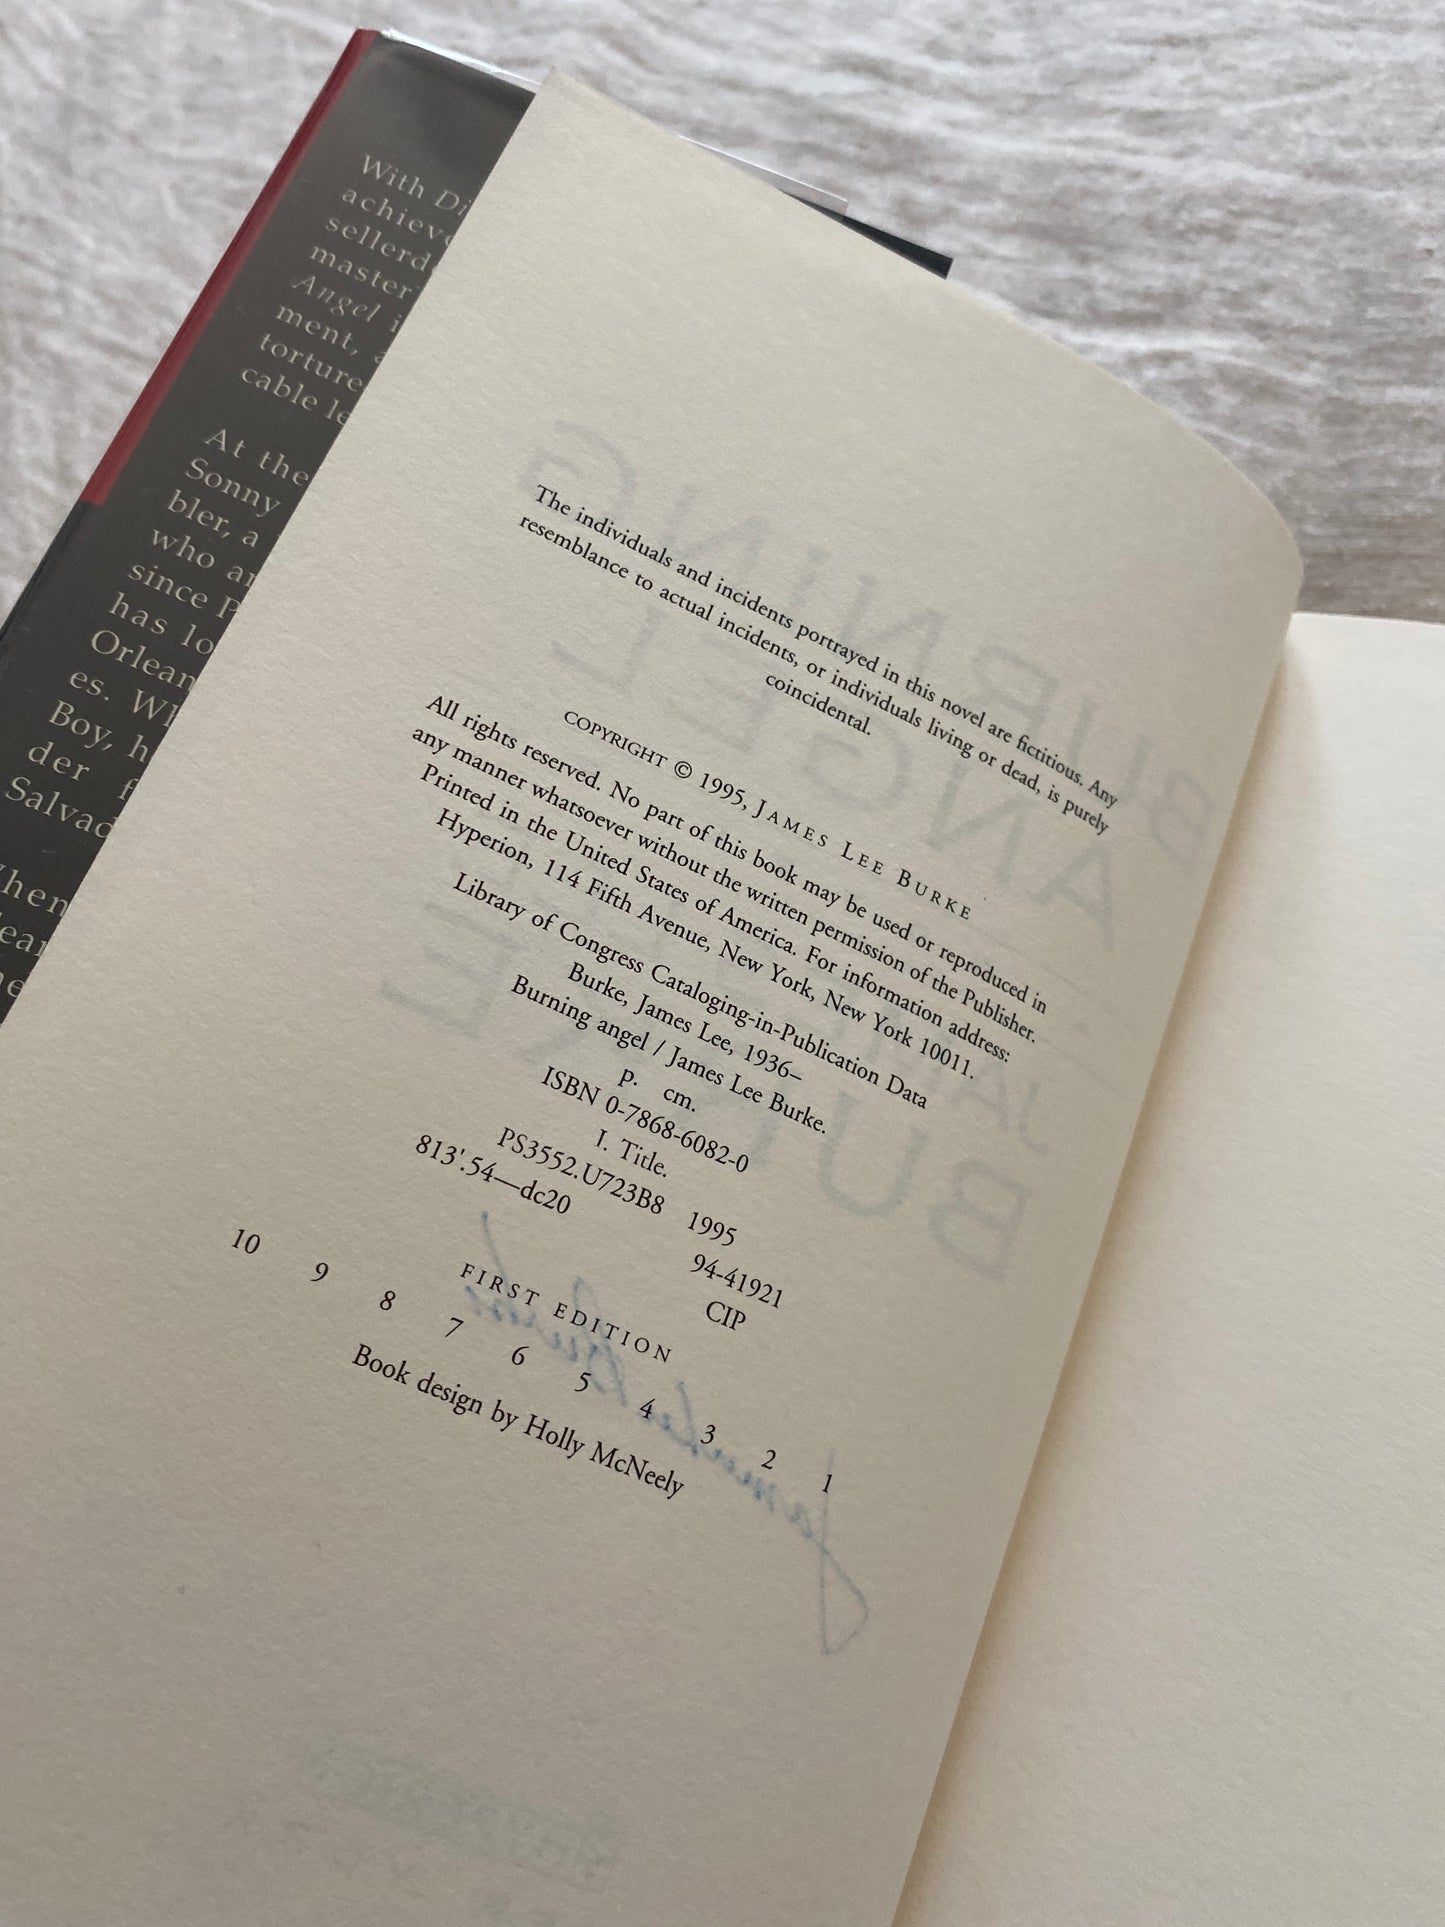 With Di
achieve
sellerd
master
Angel i
ment, a
torture
cable le
At the
Sonny
bler, a
who ar
since P
has lo
Orlean
es. Wh
Boy, h
der f
Salvad
When
lear
ne
The individuals and incidents portrayed in this novel are fictitious. Any
resemblance to actual incidents, or individuals living or dead, is purely
coincidental.
COPYRIGHT © 1995, JAMES LEE BURKE
All rights reserved. No part of this book may be used or reproduced in
any manner whatsoever without the written permission of the Publisher.
Printed in the United States of America. For information address:
Hyperion, 114 Fifth Avenue, New York, New York 10011.
Library of Congress Cataloging-in-Publication Data
Burke, James Lee, 1936–
Burning angel / James Lee Burke.
p. cm.
ISBN 0-7868-6082-0
I. Title.
PS3552.U723B8 1995
813'.54—dc20 94-41921
CIP
FIRST EDITION
10 9 8 7 6 5 4 3 2 1
Book design by Holly McNeely